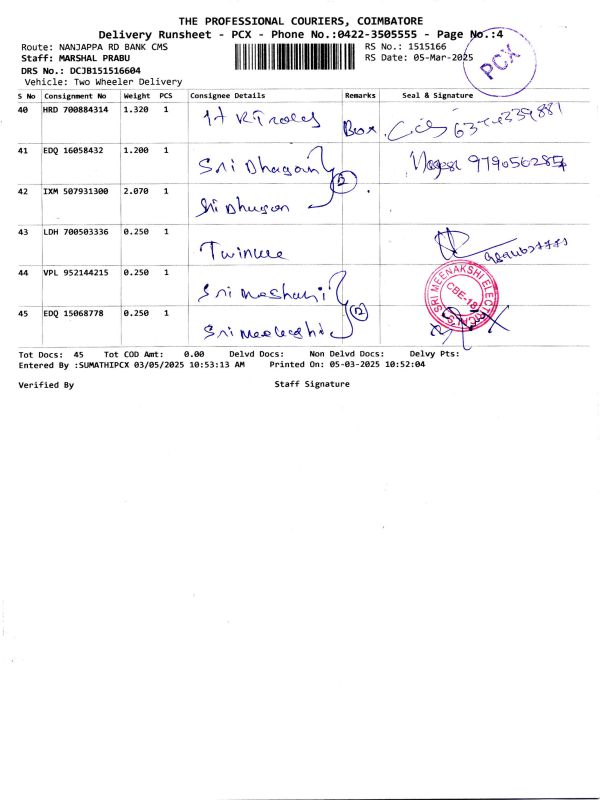 THE PROFESSIONAL COURIERS, COIMBATORE
Delivery Runsheet - PCX - Phone No.:0422-3505555 - Page No.:4
Route: NANJAPPA RD BANK CMS
RS No.: 1515166
Staff: MARSHAL PRABU
RS Date: 05-Mar-2025
PCX
DRS No.: DCJB151516604
Vehicle: Two Wheeler Delivery
S No Consignment No Weight PCS Consignee Details Remarks Seal & Signature
40 HRD 700884314 1.320 1 Box
41 EDQ 16058432 1.200 1 Sri
42 IXM 507931300 2.070 1 Sri
12
43 LDH 700503336 0.250 1 Twinkle
44 VPL 952144215 0.250 1 Sri
SRI MEENAKSHI ELECTRICALS
CBE-18
45 EDQ 15068778 0.250 1 Sri
12
Tot Docs: 45 Tot COD Amt: 0.00 Delvd Docs: Non Delvd Docs: Delvy Pts:
Entered By :SUMATHIPCX 03/05/2025 10:53:13 AM Printed On: 05-03-2025 10:52:04
Verified By Staff Signature